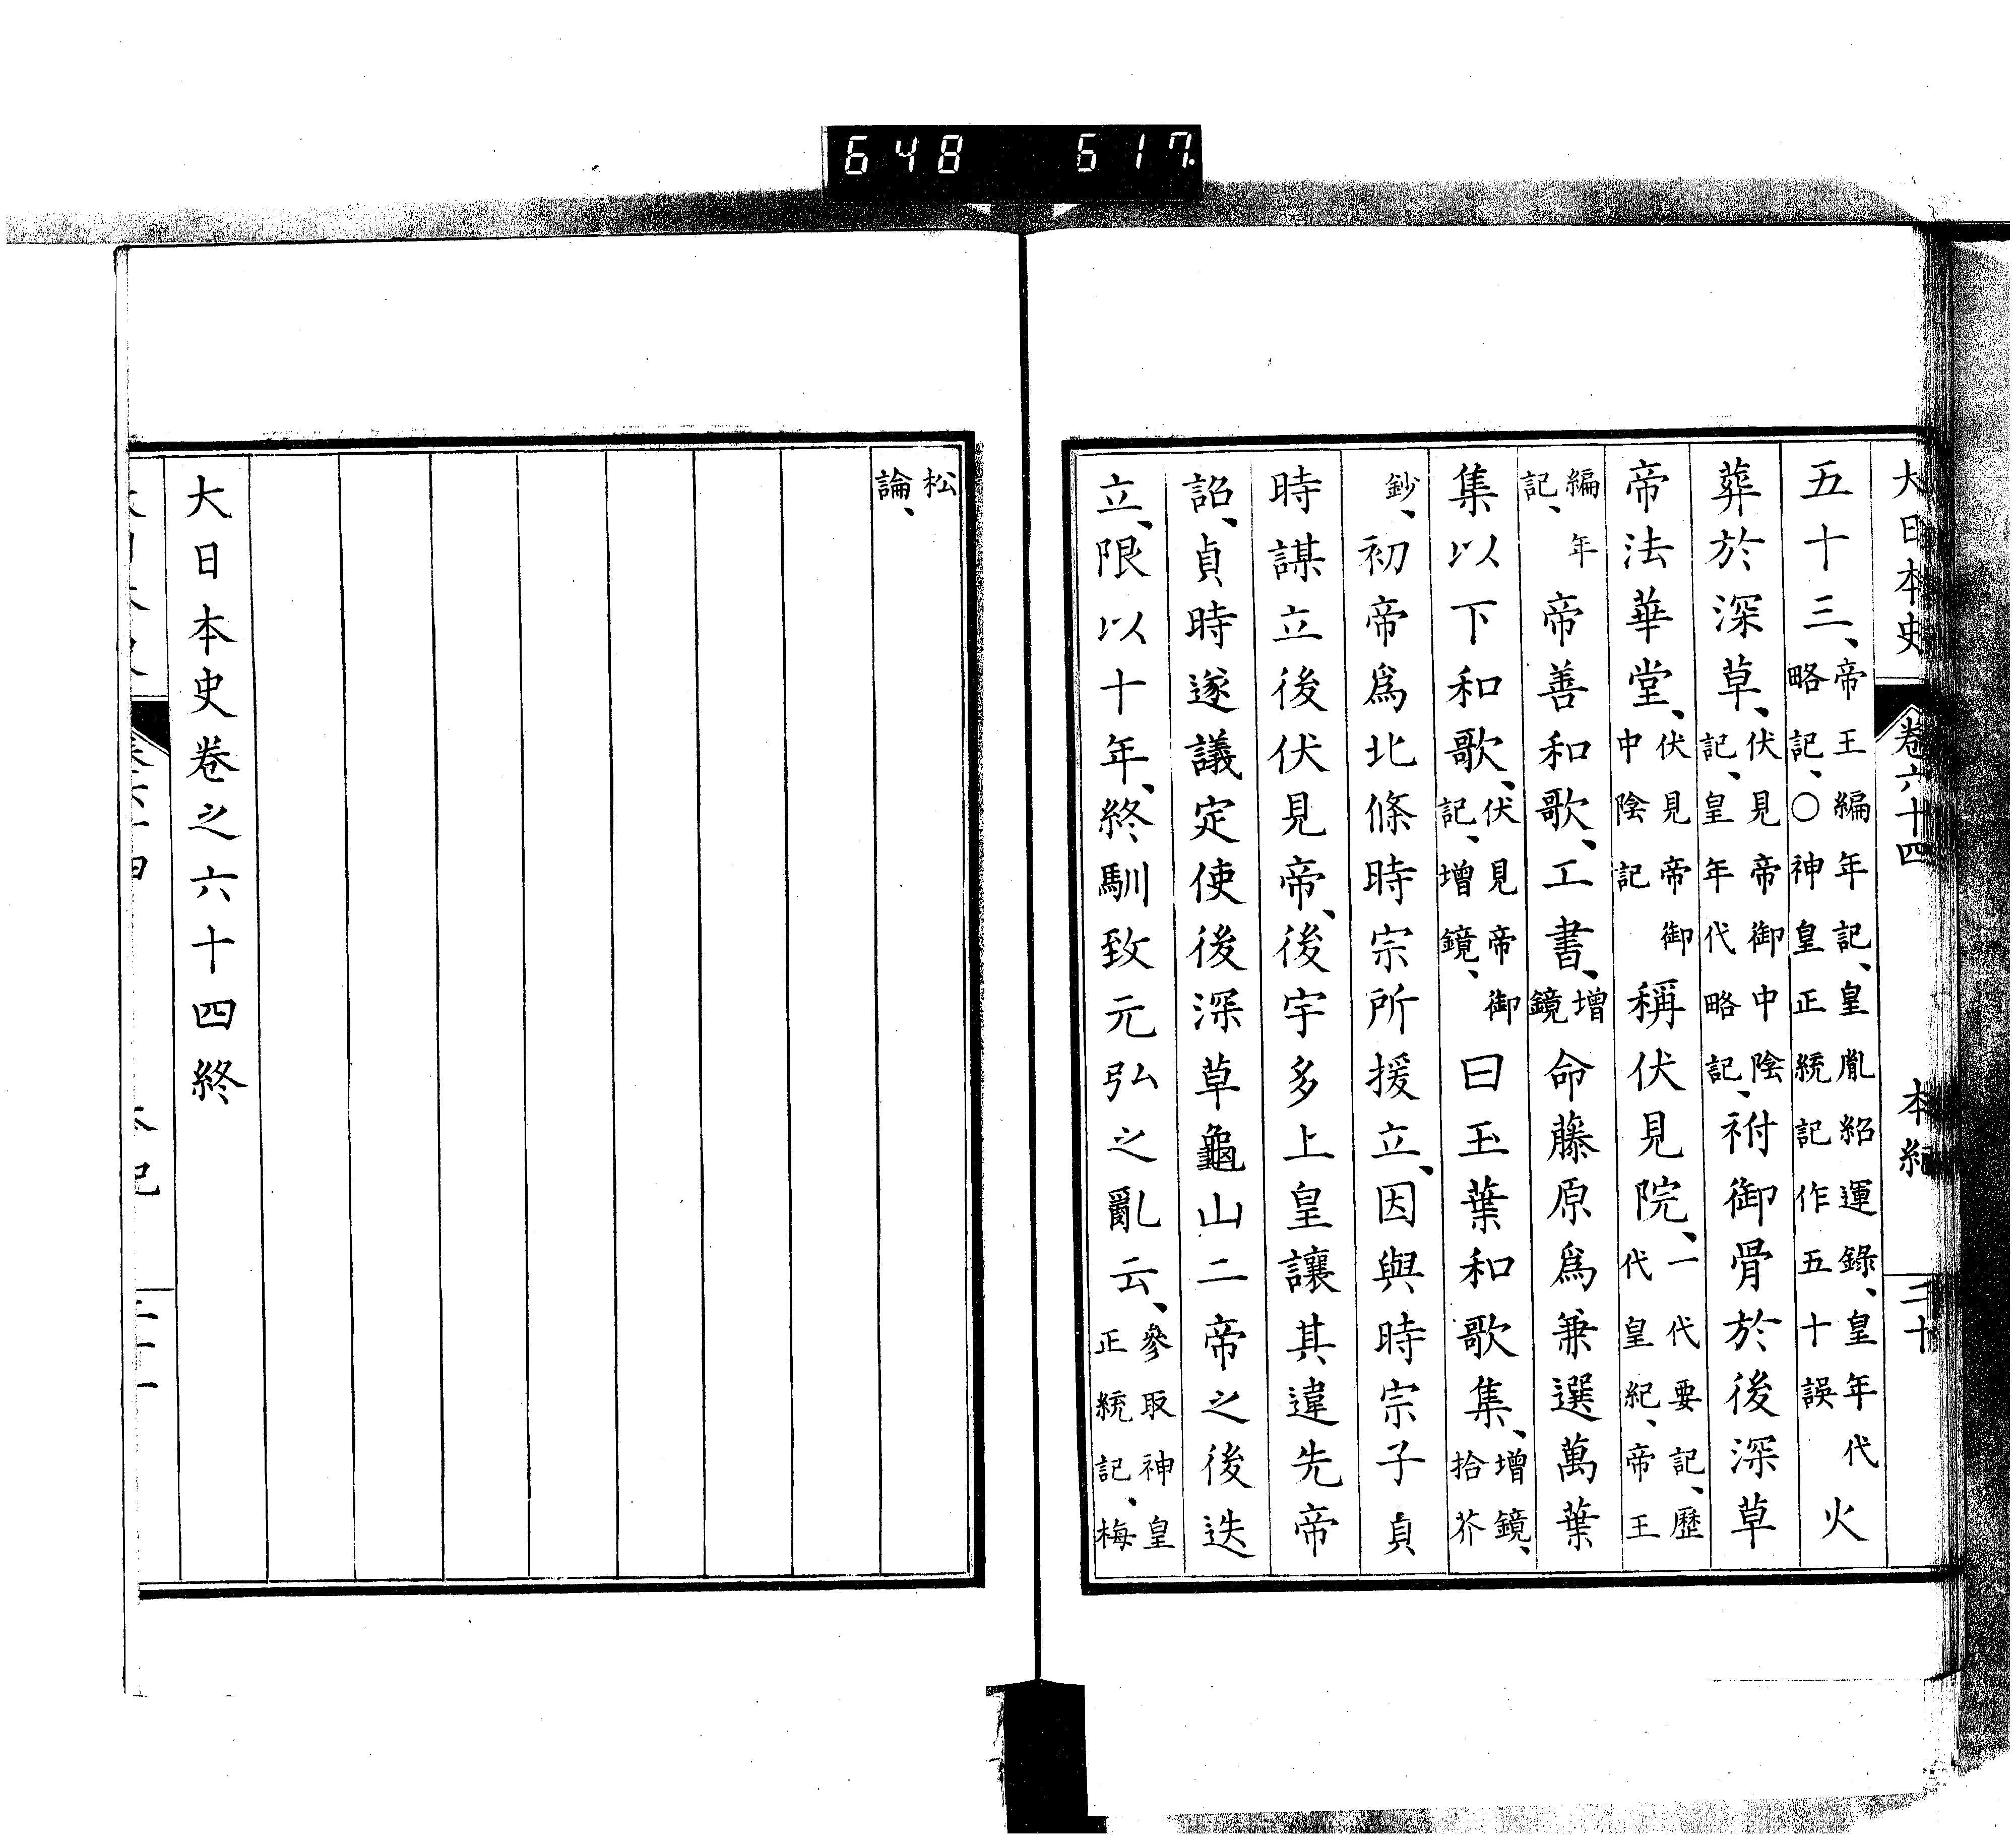 648 617
大日本史 卷六十四 本紀 二十
五十三、帝王編年記、皇胤紹運錄、皇年代略記、〇神皇正統記作五十誤 火
葬於深草、伏見帝御中陰記、皇年代略記、祔御骨於後深草
帝法華堂、伏見帝御中陰記 稱伏見院、一代要記、歷代皇紀、帝王
編年記、 帝善和歌、工書、增鏡 命藤原爲兼選萬葉
集以下和歌、伏見帝御記、增鏡、 曰玉葉和歌集、增鏡、拾芥
鈔、初帝爲北條時宗所援立、因與時宗子貞
時謀立後伏見帝、後宇多上皇讓其違先帝
詔、貞時遂議定使後深草龜山二帝之後迭
立、限以十年、終馴致元弘之亂云、參取神皇正統記、梅
松論、
大日本史卷之六十四終